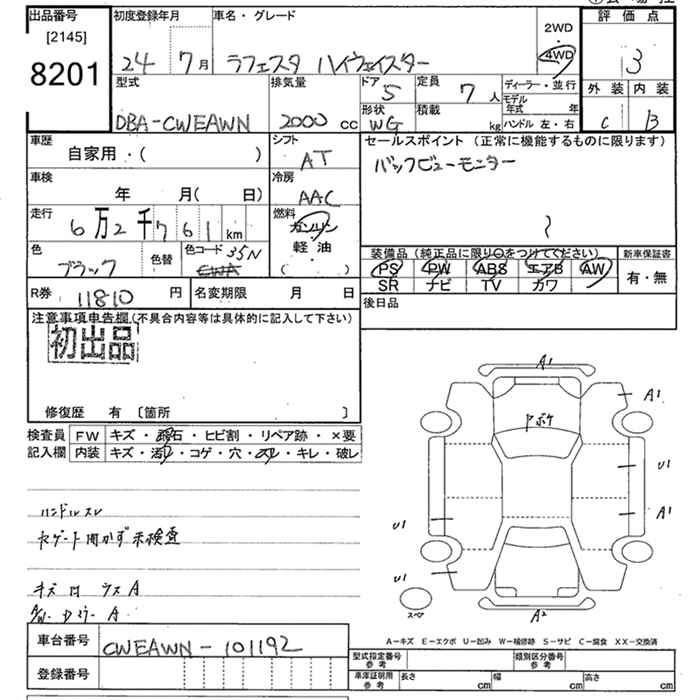 出品番号
[2145]
8201
初度登録年月
24 7月
車名・グレード
ラフェスタ ハイウェイスター
2WD
・
4WD
評価点
3
外装 内装
C B
型式
DBA-CWEAWN
排気量
2000 cc
ドア 5
形状 WG
定員 7 人
積載 kg
ディーラー・並行
モデル年式 年
ハンドル 左・右
車歴
自家用・( )
シフト
AT
セールスポイント(正常に機能するものに限ります)
バックビューモニター
車検
年 月( 日)
冷房
AAC
走行
6万2千761 km
燃料
ガソリン
・
軽油
( )
色
ブラック
色替
色コード 35N
CWA
装備品(純正品に限り○をつけてください)
PS PW ABS エアB AW
SR ナビ TV カワ
新車保証書
有・無
R券 11810 円
名変期限 月 日
後日品
注意事項申告欄(不具合内容等は具体的に記入して下さい)
初出品
修復歴 有 〔箇所 〕
検査員 FW キズ・飛石・ヒビ割・リペア跡・×要
記入欄 内装 キズ・汚レ・コゲ・穴・スレ・キレ・破レ
ハンドルスレ
キズ 凹 ウス A
A1
A1
U1
A1
U1
U1
スペア
A2
A-キズ E-エクボ U-凹み W-補修跡 S-サビ C-腐食 XX-交換済
車台番号 CWEAWN-101192
登録番号
型式指定番号
参考
類別区分番号
参考
車庫証明用
参考
長さ cm
幅 cm
高さ cm